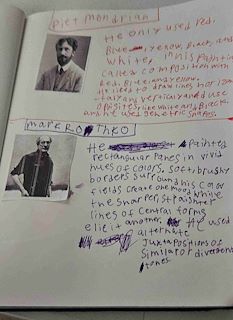 piet mondrian
He only used red,
Blue, yellow, Black, and
White, in his Painting
called composition with
Red, Blue, and yellow.
He used to draw lines hori zon
tally and vertically and used
opposites, like white and Black
and he uses geometric shapes.
mark Ro theo
He painted
rectangular panes in vivid
hues of colors. Soft, brushy
borders surround his color
fields create one mood while
the sharper, straighter
lines of central forms
elicit another. He used
alternate
juxtapositions of
similar or divergent
tones